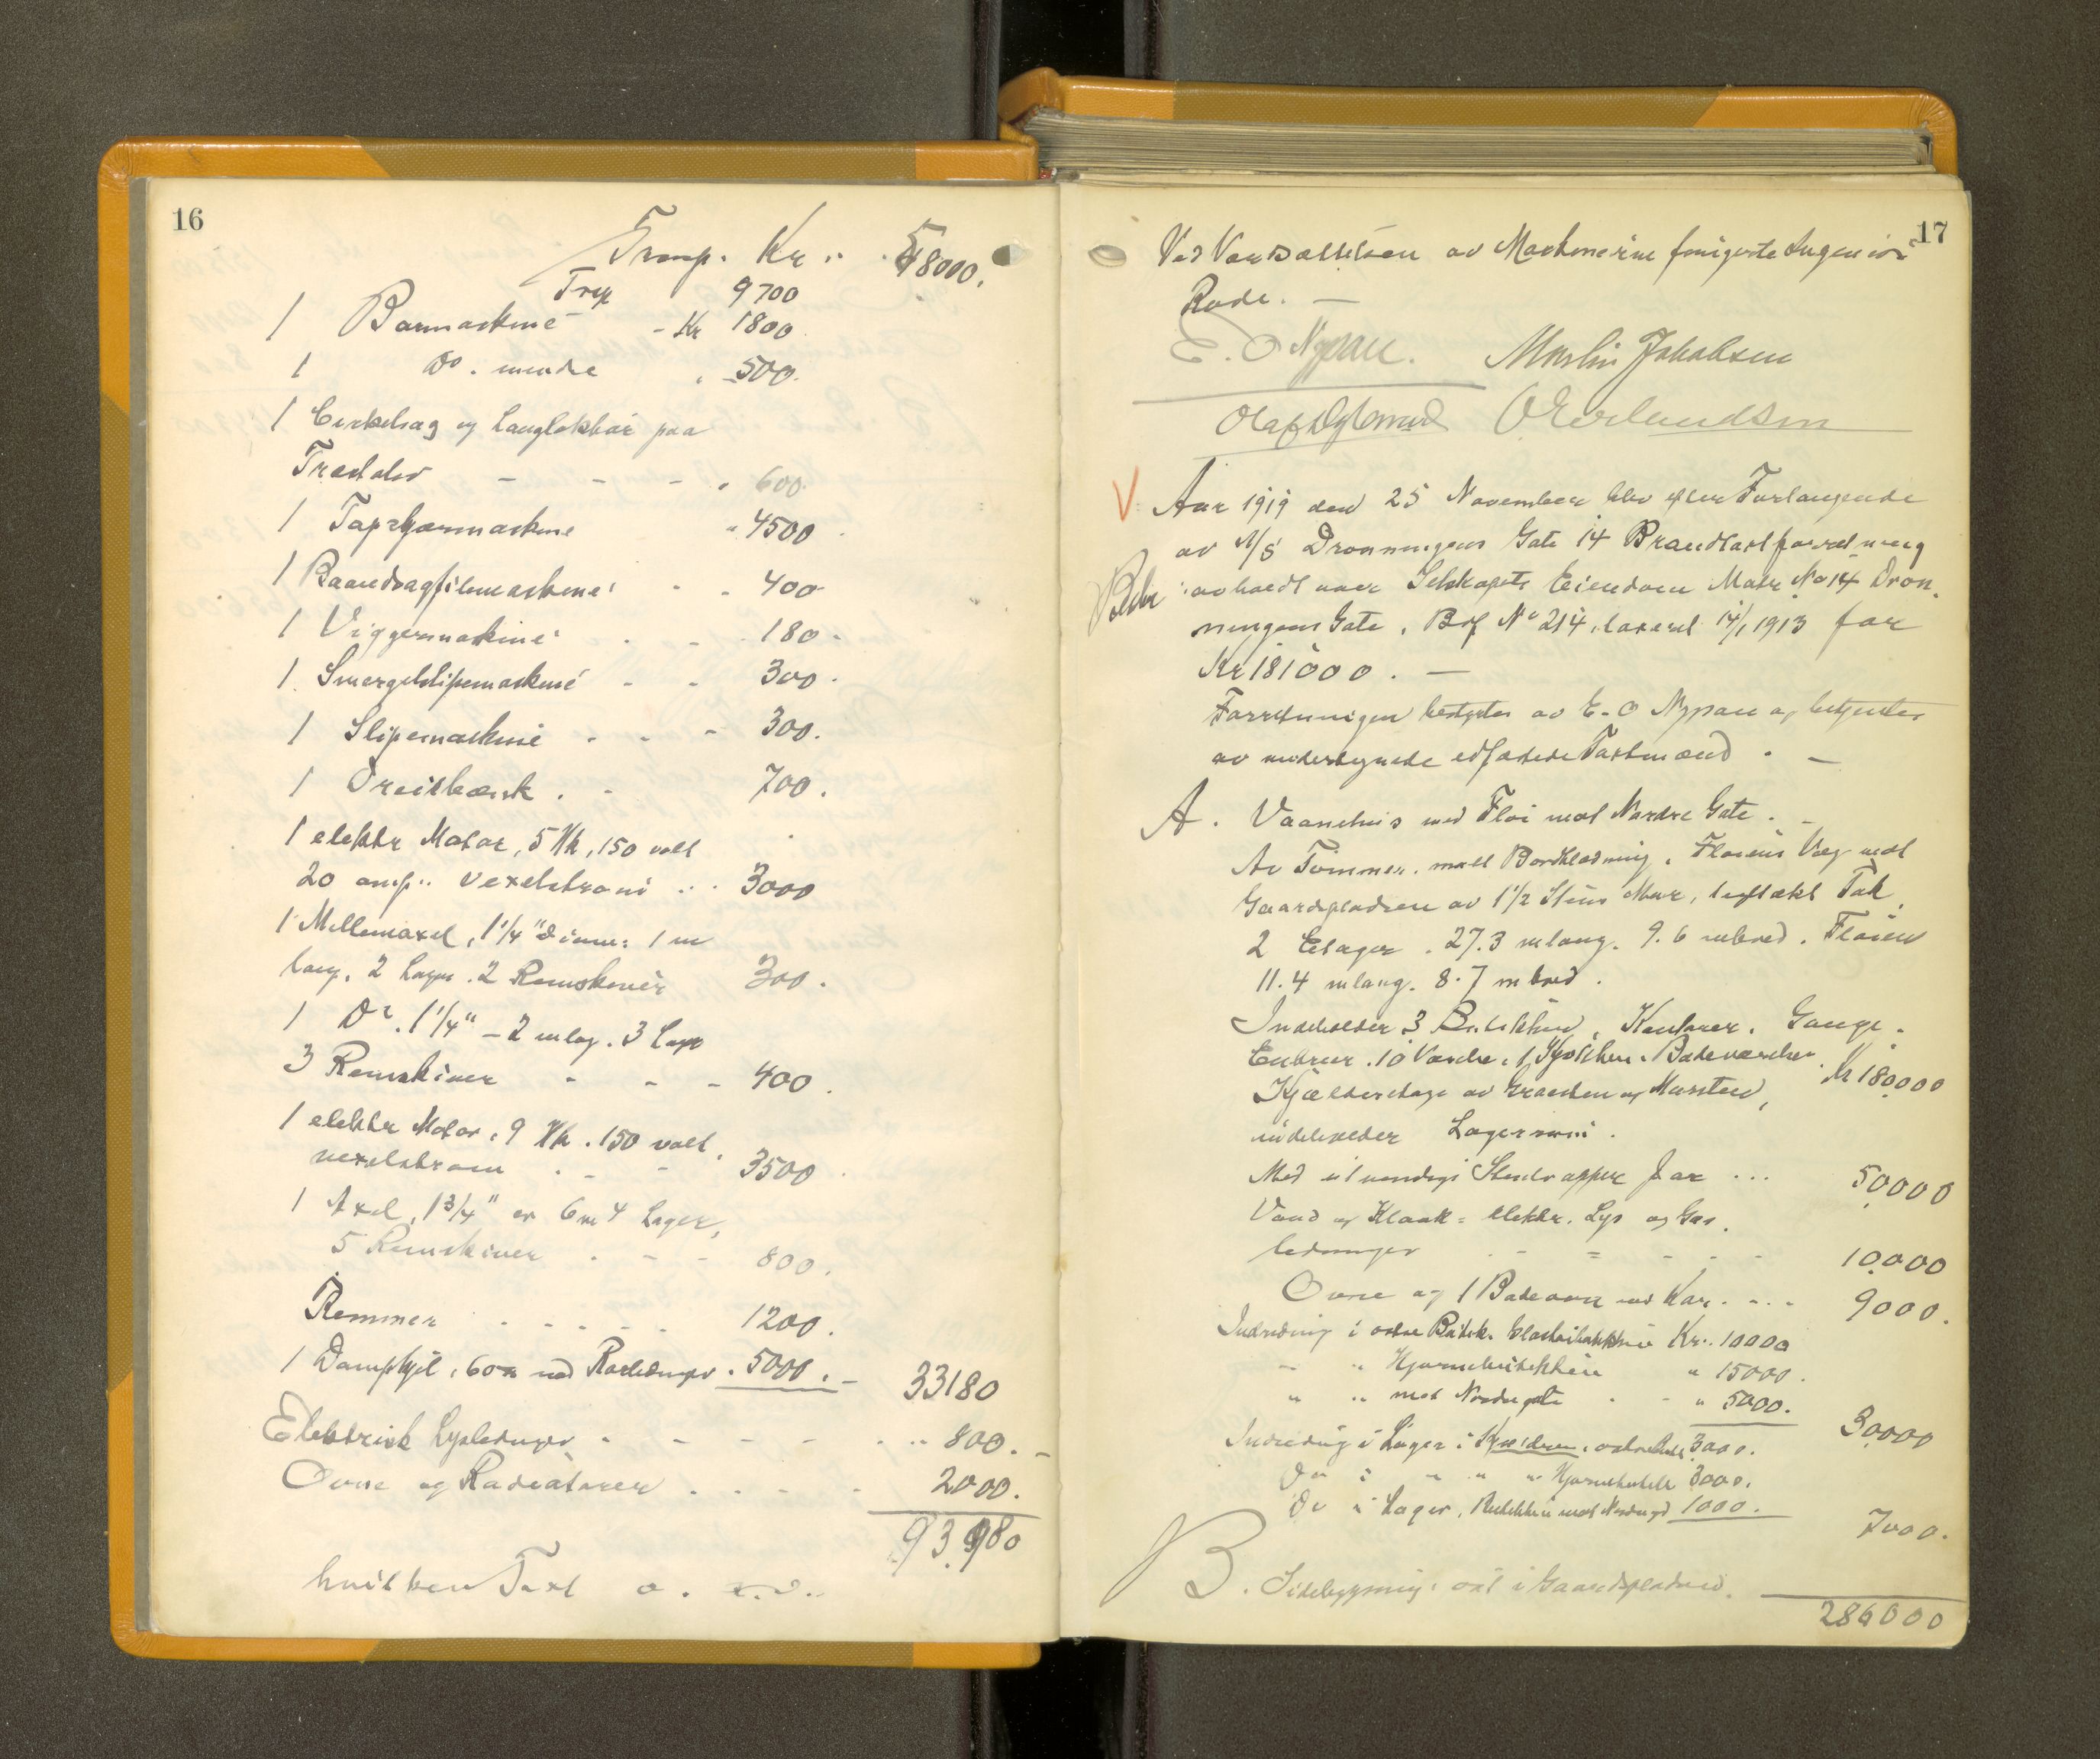 16
Transp. Kr. 58000.
Trsp 9700
1 Bormaskine - Kr 1800
1 Do. mindre " 500.
1 Cirkelsag og Langhulsbor paa
Træstativ - - - " 600.
1 Tapskjærmaskine " 4500
1 Baandsagfilemaskine - - 400
1 Viggermaskine - - 180 -
1 Smergelslipemaskine - - 300 -
1 Slipemaskine - - - 300.
1 Dreiebænk . - 700.
1 elektr Motor, 5 Hk, 150 volt
20 amp. vexelstrøm . . 3000
1 Mellemaxel, 1 1/4" Diam: 1 m
lang, 2 Lager. 2 Remskiver 300.
1 Do. 1 1/4" - 2 m lng. 3 Lager
3 Remskiver - - - 400.
1 elektr Motor, 9 Hk. 150 volt,
vexelstrøm . - - 3500
1 Axel, 1 3/4" 6 m 4 Lager,
5 Remskiver . - - 800.
Remmer . . . . . 1200.
1 Dampkjel, med Rørledninger . 5000. - 33180
Elektrisk Lysledninger - - - - - 800. -
Ovne og Radiatorer . . . . 2000.
93.980
hvilken Taxt o. s.v.
17
Ved Værdsættelsen av Maskinerne fungerte Ingeniør
Rode. -
E. O Nypan. Martin Jakobsen
Olaf O Erlandsen
V. Aar 1919 den 25 November blev efter Forlangende
av A/S Dronningens Gate 14 Brandtaxtforretning
avholdt over Selskapets Eiendom Matr. No 14 Dron-
ningens Gate, Bof No 214, taxeret 14/1 1913 for
Kr 181000. -
Forretningen bestyrtes av E. O Nypan og betjentes
av undertegnede edfæstede Taxtmænd. -
A. Vaanehus med Fløi mot Nordre Gate. -
Av Tømmer, malt Bordklædning, Fløiens Væg mot
Gaardspladsen av 1 1/2 Stens Mur, tegltækt Tak,
2 Etager. 27.3 m lang. 9.6 m bred. Fløien
11.4 m lang. 8.7 m bred.
Indeholder 3 Butikker, Kontorer, Gange,
Entreer. 10 Værelser, 1 Kjøkken, Badeværelse. Kr 180000
Kjælderetage av Graasten og Mursten,
indeholder Lagerrum.
Med utvendige Stentrapper for ... 50000
Vand og Kloak- elektr. Lys og Gas-
ledninger - = - - - 10000
Ovne og 1 Badeovn med Kar. - .. 9000.
Indredning i østre Butik. Kr. 10000
- " Hjørnebutikken " 15000.
" " mot Nordregate . - " 5000. 30000
Indredning i Lager i Kjælderen, østre Butik 3000.
Do i " " " Hjørnebutik 3000.
Do i Lager, Butikken mot Nordregt 1000. 7000.
B. Sidebygning, øst i Gaardspladsen.
286000